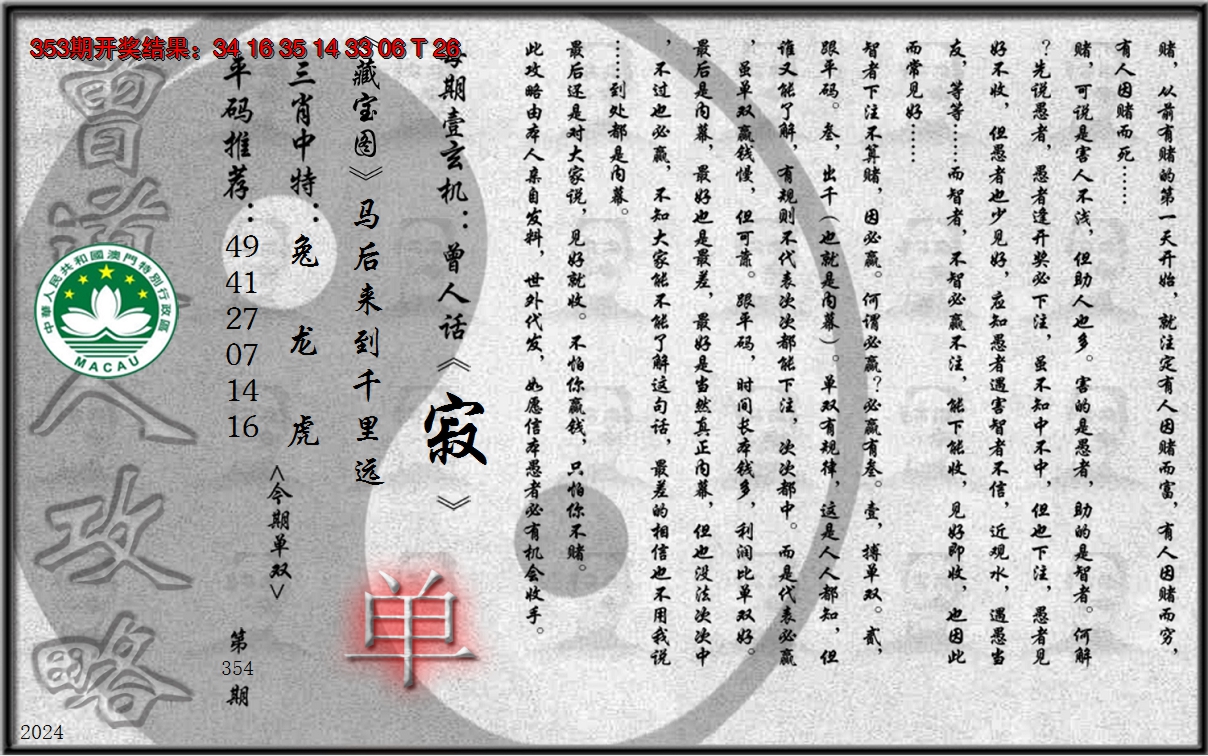 353期开奖结果：34 16 35 14 33 06 T 26
赌，从前有赌的第一天开始，就注定有人因赌而富，有人因赌而穷，
有人因赌而死……
赌，可说是害人不浅，但助人也多。害的是愚者，助的是智者。何解
？先说愚者，愚者逢开奖必下注，虽不知中不中，但也下注，愚者见
好不收，但愚者也少见好，应知愚者遇害智者不信，近观水，遇愚当
友，等等……而智者，不智必赢不注，能下能收，见好即收，也因此
而常见好……
智者下注不算赌，因必赢。何谓必赢？必赢有叁。壹，搏单双。贰，
跟平码。叁，出千（也就是内幕）。单双有规律，这是人人都知，但
谁又能了解，有规则不代表次次都能下注，次次都中。而是代表必赢
，虽单双赢钱慢，但可靠。跟平码，时间长本钱多，利润比单双好。
最后是内幕，最好也是最差，最好是当然真正内幕，但也没法次次中
，不过也必赢，不知大家能不能了解这句话，最差的相信也不用我说
……到处都是内幕。
最后还是对大家说，见好就收。不怕你赢钱，只怕你不赌。
此攻略由本人亲自发料，世外代发，如愿信本愚者必有机会收手。
每期壹玄机：曾人话《寂》
《藏宝图》马后来到千里远
三肖中特：兔 龙 虎
平码推荐：49 41 27 07 14 16
<今期单双>
单
第354期
曾道人攻略
中華人民共和國澳門特別行政區
MACAU
2024